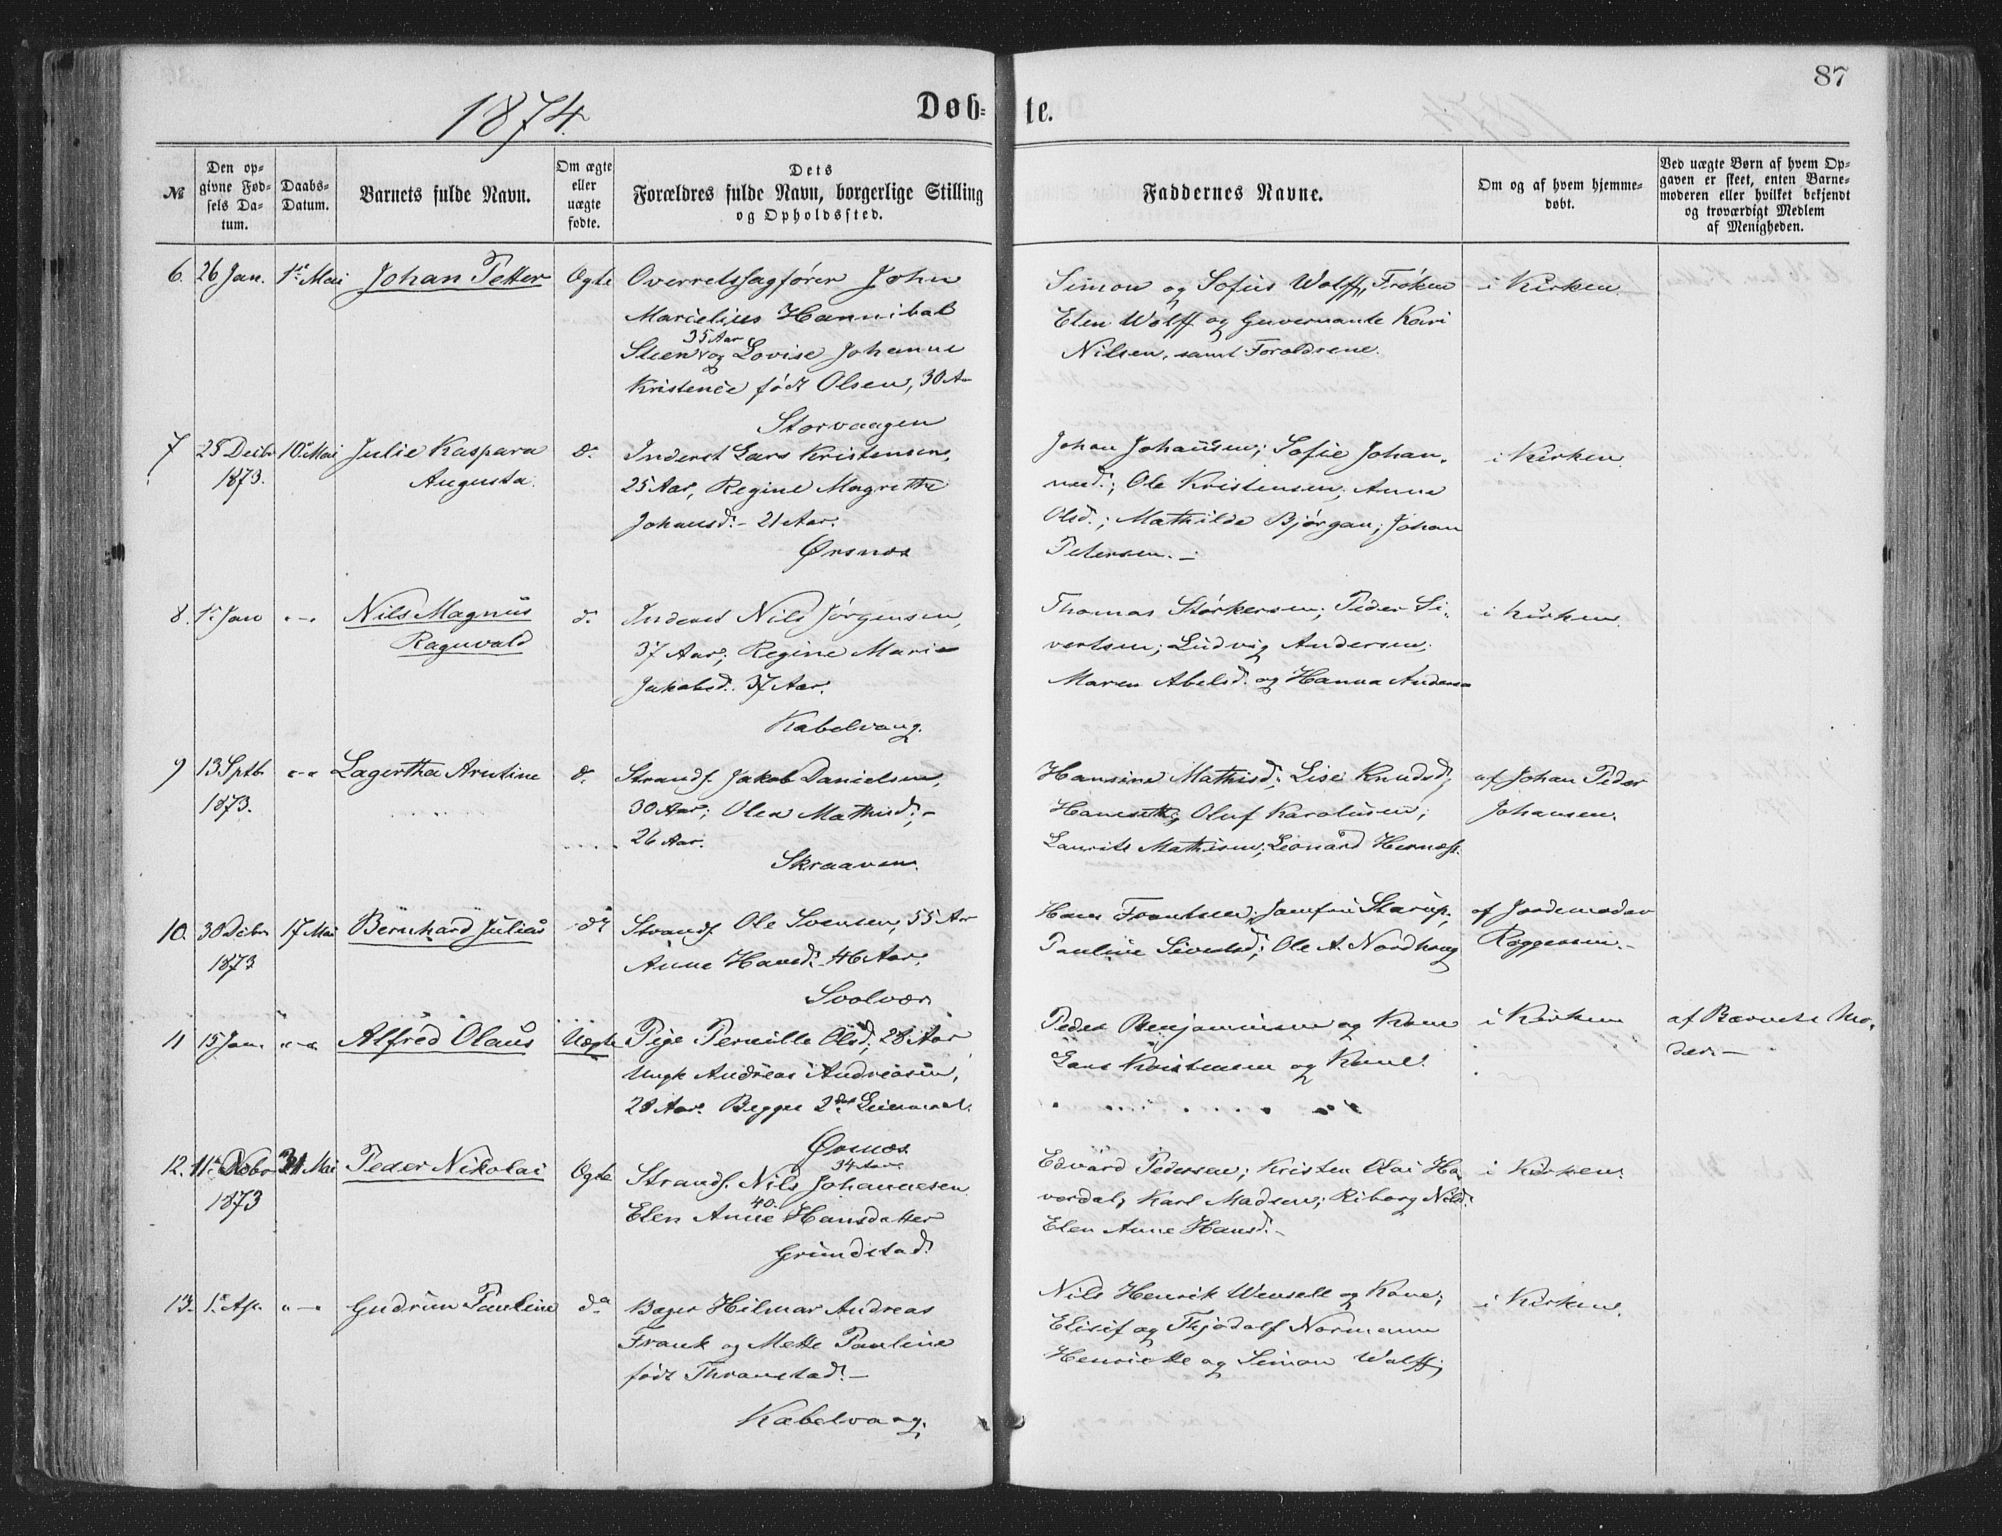 87
1874.
Døb-
te.
№
Den op-
givne Fød-
sels Da-
tum.
Daabs-
Datum.
Barnets fulde Navn.
Om ægte
eller
uægte
fødte.
Dets
Forældres fulde Navn, borgerlige Stilling
og Opholdssted.
Faddernes Navne.
Om og af hvem hjemme-
døbt.
Ved uægte Børn af hvem Op-
gaven er skeet, enten Barne-
moderen eller hvilket bekjendt
og troværdigt Medlem
af Menigheden.
6. 26 Jan. 1ste Mai Johan Petter Ægte
Overretssagfører John
Marcelius Hannibal
35 Aar
Steen og Lovise Johanne
Kristence født Olsen, 30 Aar
Storvaagen
Simon og Sofus Wolff, Frøken
Elen Wolff og Guvernante Kari
Nilsen, samt Forældrene.
i Kirken.
7 25 Decbr 10. Mai Julie Kaspara do
1873. Augusta.
Inderst Lars Kristensen,
25 Aar, Regine Magrethe
Johansd. - 21 Aar.
Ørsnæs
Johan Johansen; Sofie Johan-
nesd.; Ole Kristensen; Anna
Olsd.; Mathilde Bjørgan; Johan
Petersen. -
i Kirken
8. 1. Jan "-" Nils Magnus do
Ragnvald
Inderst Nils Jørgensen,
37 Aar; Regine Marie
Jakobsd. 37 Aar.
Kabelvaag.
Thomas Størkersen; Peder Si-
vertsen; Ludvig Andersen;
Maren Abelsd. og Hanna Andersen
i Kirken.
9 13 Sptb. "-" Lagertha Arntine do
1873.
Strands. Jakob Danielsen,
30 Aar; Olea Mathisd.; -
26 Aar.
Skraaven.
Hansine Mathisd.; Lise Knudsd.;
Oluf Karolusen;
Laurits Mathisen; Leonard Hernæs.
af Johan Peder
Johansen.
10. 30 Decbr 17 Mai Bernhard Julius do
1873
Strands. Ole Svensen, 55 Aar
Anne Hansd. 46 Aar.
Svolvær
Hans Frantsen; Jomfru Starup;
Pauline Sivertsd.; Ole A. Nordhaug
af Jordemoder
Roggensen. -
11 15 Jan. "-" Alfred Olaus Uægte
Pige Pernille Olsd., 28 Aar
Ungk Andreas Andreasen,
28 Aar. Begges 2det Leiermaal.
Ørsnæs
Peder Benjaminsen og Kone
Lars Kristensen og Kone.
i Kirken
af Barnets Mo-
der. -
12. 11te 31 Mai Peder Nikolai Ægte
1873
34 Aar
Strands. Nils Johannesen
40.
Elen Anne Hansdatter
Grundstad.
Edvard Pedersen; Kristen Olai Ha-
verdal; Karl Madsen; Riborg Nilsd.
Elen Anne Hansd. -
i Kirken.
13. 1. Ap. "-" Gudrun Pauline do
Bager Hilmar Andreas
Frank og Mette Pauline
født Thranstad. -
Kabelvaag.
Nils Henrik Wensell og Kone;
Elisif og Thjodolf Normann
Henriette og Simon Wolff;
i Kirken.